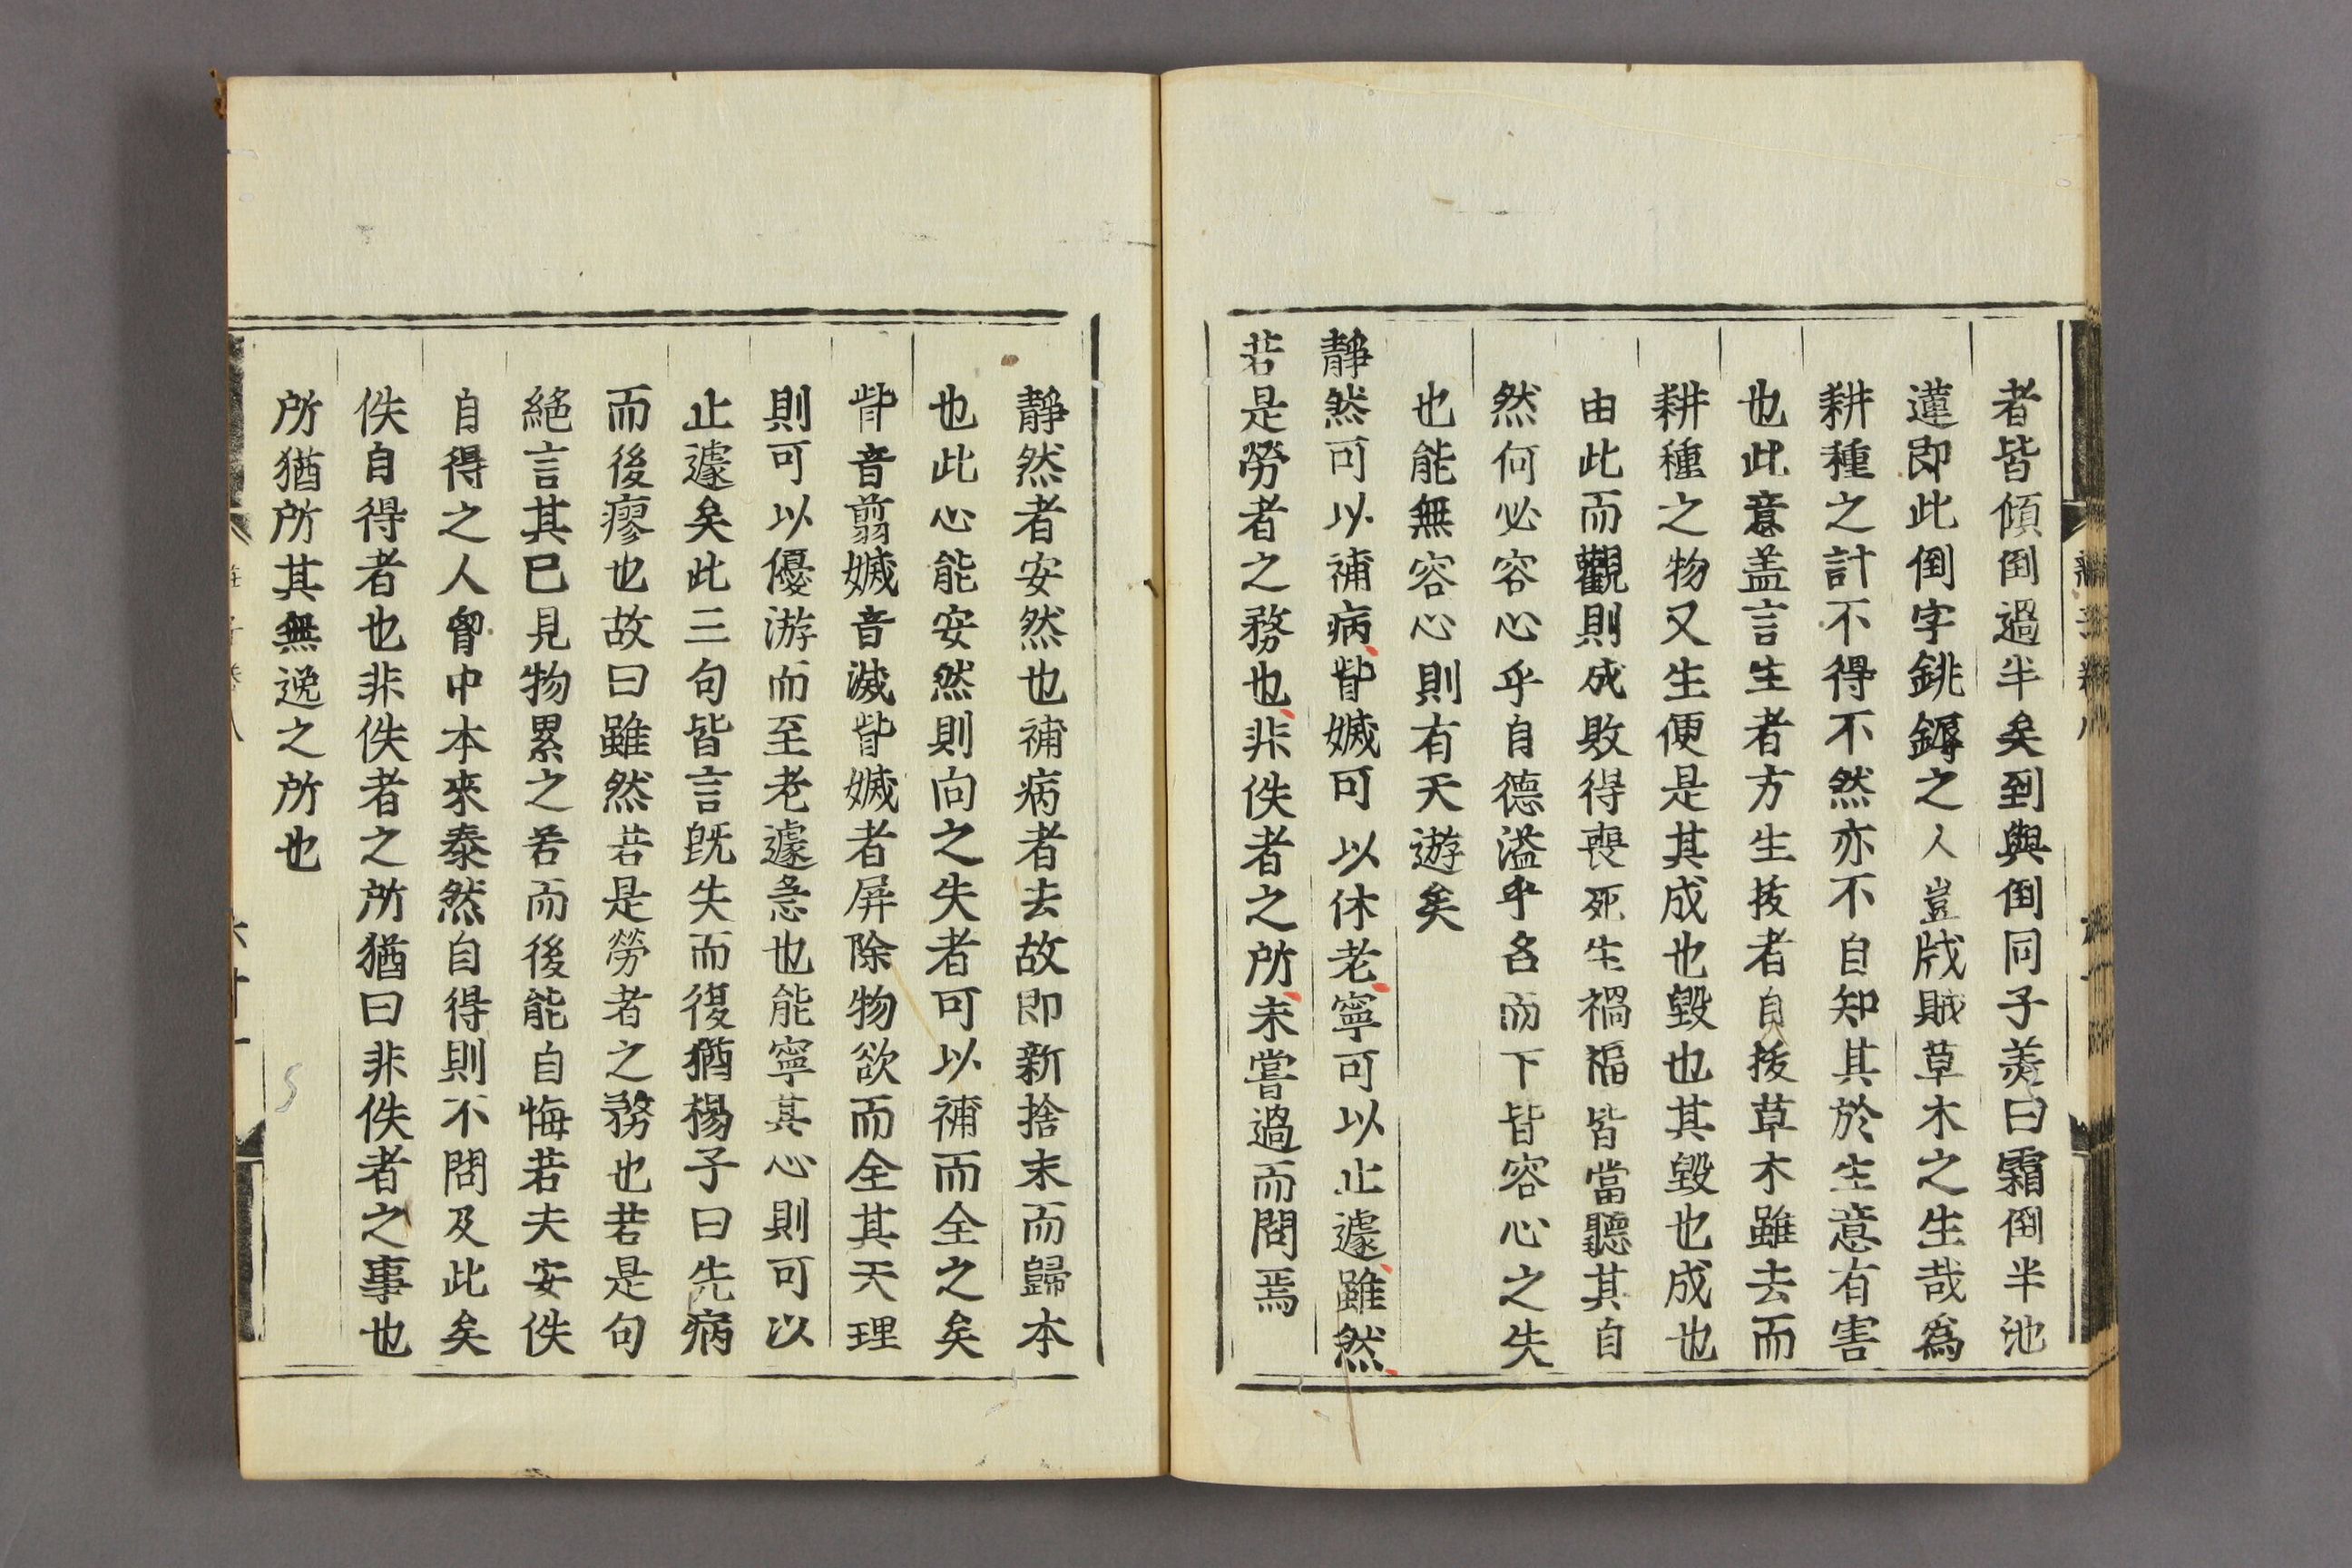 者皆傾倒過半矣到與倒同子美曰霜倒半池
蓮即此倒字銚鎒之人豈戕賊草木之生哉爲
耕種之計不得不然亦不自知其於生意有害
也此意盖言生者方生拔者自拔草木雖去而
耕種之物又生便是其成也毀也其毀也成也
由此而觀則成敗得喪死生禍福皆當聽其自
然何必容心乎自德溢乎名而下皆容心之失
也能無容心則有天遊矣
靜然可以補病眥㓕可以休老寧可以止遽雖然
若是勞者之務也非佚者之所未嘗過而問焉
靜然者安然也補病者去故即新捨末而歸本
也此心能安然則向之失者可以補而全之矣
眥音翦㛽音滅眥㛽者屏除物欲而全其天理
則可以優游而至老遽急也能寧其心則可以
止遽矣此三句皆言既失而復猶楊子曰先病
而後瘳也故曰雖然若是勞者之務也若是句
絕言其已見物累之若而後能自悔若夫安佚
自得之人胷中本來泰然自得則不問及此矣
佚自得者也非佚者之所猶曰非佚者之事也
所猶所其無逸之所也